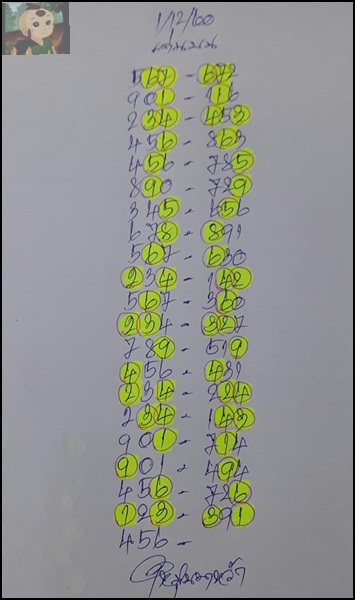 1/12/60
567 - 672
901 - 116
234 - 453
456 - 863
456 - 785
890 - 789
345 - 656
678 - 891
567 - 630
234 - 142
567 - 360
234 - 327
789 - 519
456 - 431
234 - 224
234 - 143
901 - 714
901 - 494
456 - 726
123 - 391
456 -